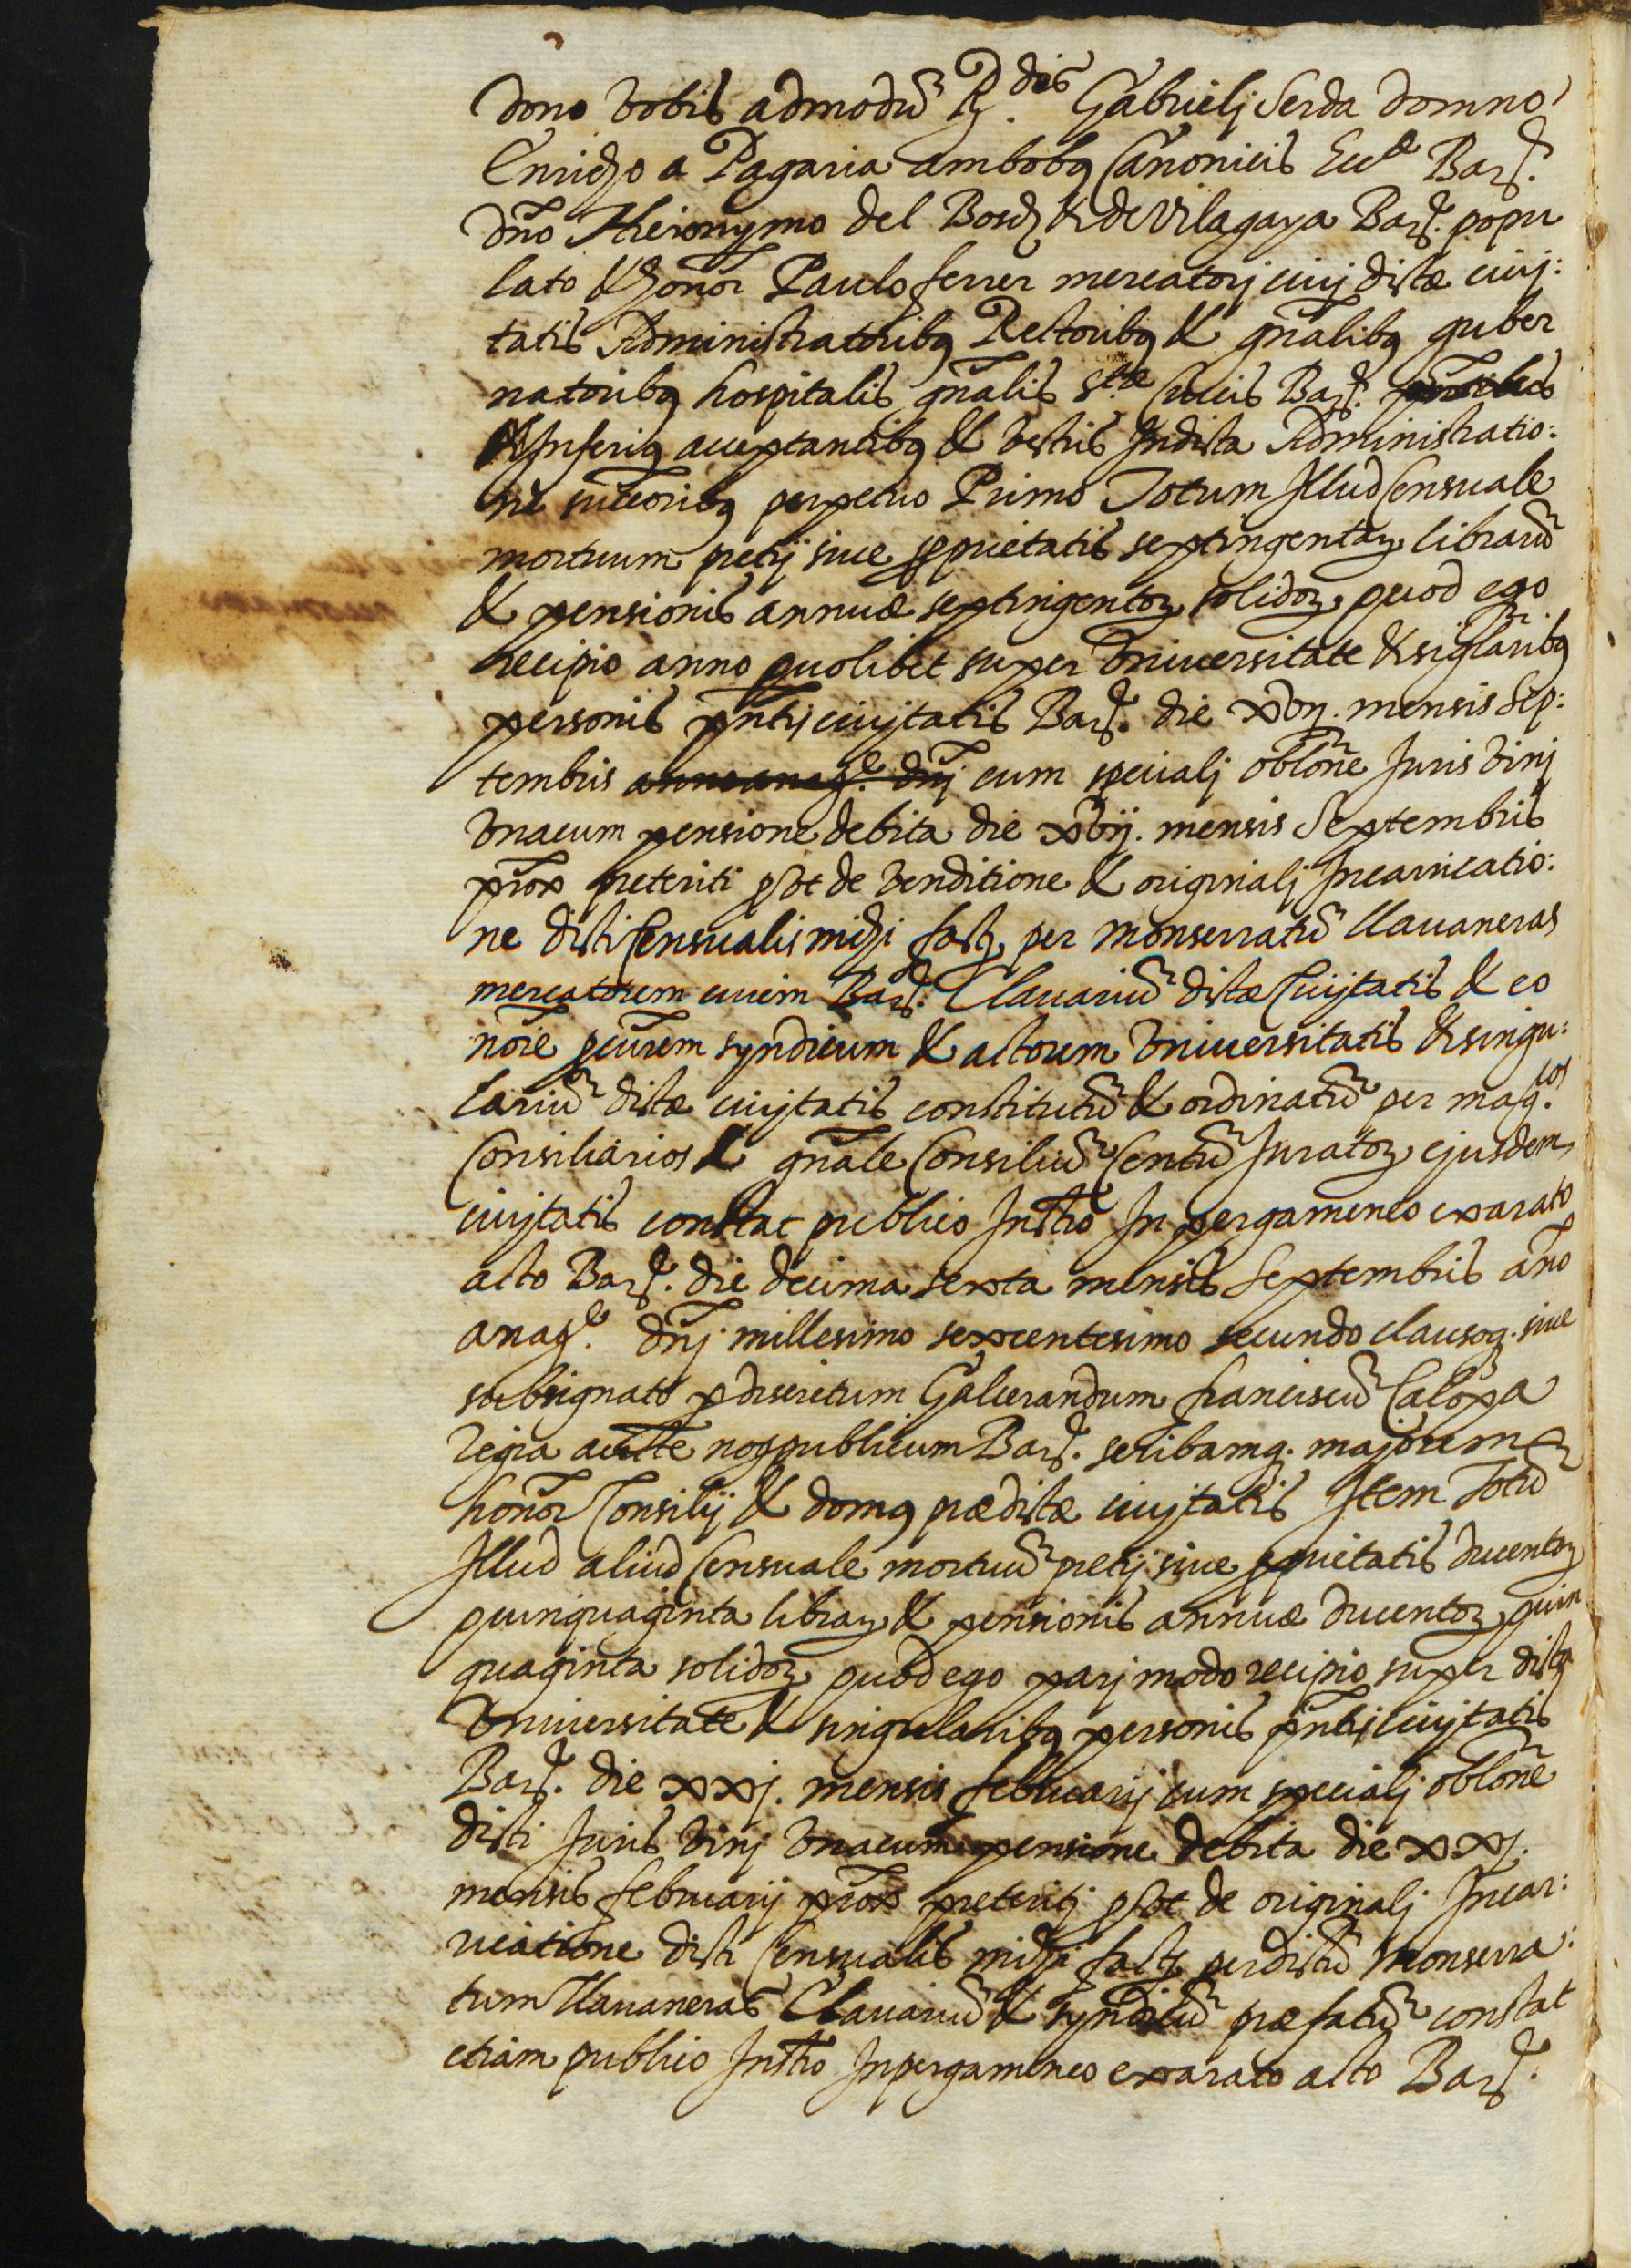 dono vobis admodũ R.dis Gabrielj Serda domno
Enricho a Pagaria ambobꝫ Canonicis Eccle Barꝫ.
dño Hieronymo del Bosch & de Vilagaya Barꝫ. popu
lato & honor Paulo ferrer mercatorj civj dictæ civj:
tatis Administratoribꝫ Rectoribꝫ & gñalibꝫ guber
natoribꝫ hospitalis gñalis S.tæ Crucis Barꝫ.
& Inferiꝫ acceptantibꝫ & vestris Indicta Administratio:
ne succoribꝫ perpetuo Primo Totum Illud Censuale
mortuum pretij sive ꝓprietatis septingentaꝝ librarũ
& pensionis annuæ septingentoꝝ solidoꝝ quod ego
recipio anno quolibet super Vniversitate & siglaribꝫ
personis pñtis civjtatis Barꝫ. die xvij. mensis Sep:
tembris anno anaꝫe. dñj cum specialj oblõne Juris vinj
vnacum pensione debita die xvij. mensis Septembris
prox preteriti ꝓut de venditione & originalj Incarricatio:
ne dicti Censualis michi factꝫ per Monserratũ llavaneras
mercatorem civem Barꝫ. Clavariũ dictæ Civjtatis & eo
nõie ꝓcurem syndicum & actorem Vniversitatis & singu:
lariũ dictæ civjtatis constitutũ & ordinatũ per magcos.
Consiliarios & gñale Consiliũ Centũ Juratoꝝ ejusdem
civjtatis constat publico Instro In pergameneo exarato
acto Barꝫ. die decima sexta mensis Septembris año
anaꝫe. dñj millesimo sexcentesimo secundo clausoq. sive
subsignato ꝑ discretum Galcerandum franciscũ Calopa
regia aucte noꝝ publicum Barꝫ. scribamq. majorem
honor Consilij & domꝫ prædictæ civjtatis Item Totũ
Illud aliud Censuale mortuũ pretij sive ꝓprietatis ducentoꝝ
quinquaginta libraꝝ & pensionis annuæ ducentoꝝ quin
quaginta solidoꝝ quod ego parj modo recipio super dicta
Vniversitate & singularibꝫ personis pñtis civjtatis
Barꝫ. die xxj. mensis februarij cum specialj oblõne
dicti Juris vinj vnacum pensione debita die xxj.
mensis februarij prox preteritj ꝓut de originalj Incar:
ricatione dicti Censualis michi factꝫ per dictũ Monserra:
tum llavaneras Clavariũ & syndicũ præfatũ constat
etiam publico Instro In pergameneo exarato acto Barꝫ.